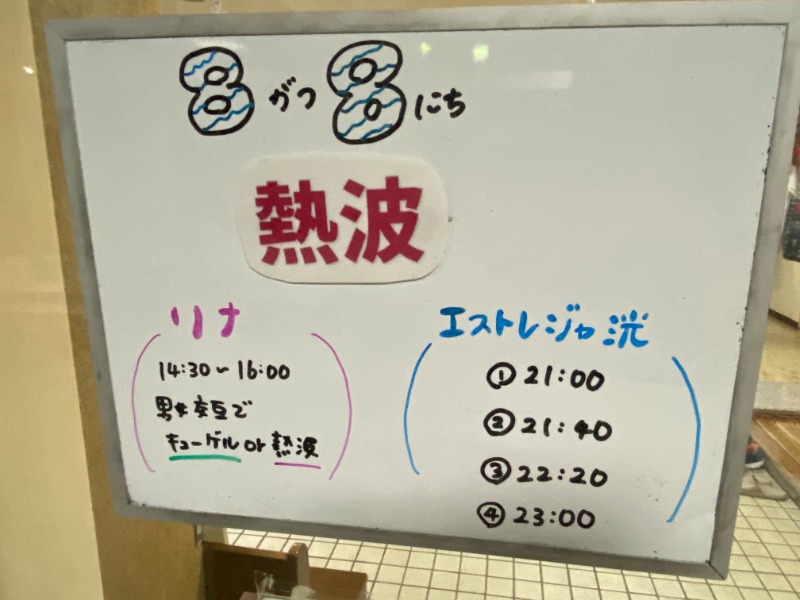 8がつ8にち
熱波
リナ
14:30〜16:00
男女交互で
キューゲル or 熱波
エストレジャ洸
① 21:00
② 21:40
③ 22:20
④ 23:00